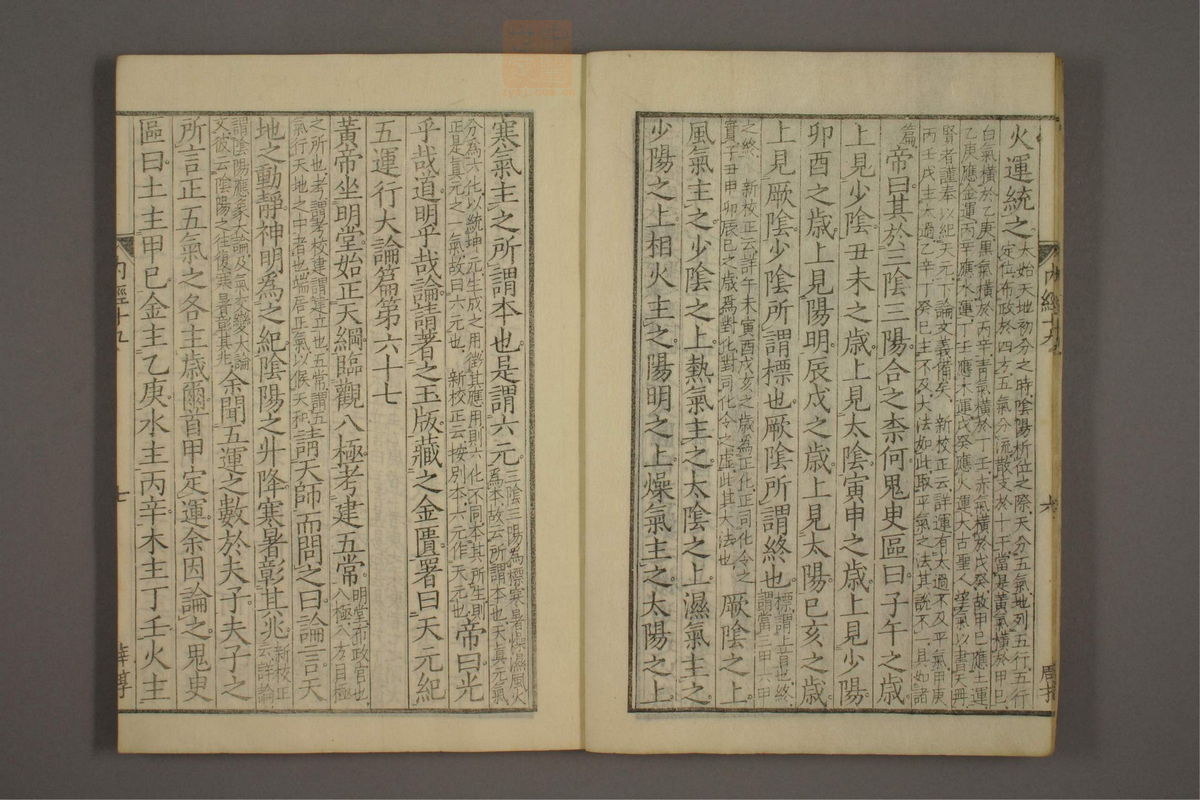 火運統之太始天地初分之時陰陽析位之際天分五氣地列五行五行
定位布政於四方五氣分流散支於十干當是黃氣橫於甲巳
白氣橫於乙庚黑氣橫於丙辛青氣橫於丁壬赤氣橫於戊癸故甲巳應土運
乙庚應金運丙辛應水運丁壬應木運戊癸應火運大古聖人望氣以書天冊
賢者謹奉以紀天元下論文義備矣 新校正云詳運有太過不及平氣甲庚
丙壬戊主太過乙辛丁癸巳主不及大法如此取平氣之法其說不一具如諸
篇帝曰其於三陰三陽合之柰何鬼臾區曰子午之歲
上見少陰丑未之歲上見太陰寅申之歲上見少陽
卯酉之歲上見陽明辰戌之歲上見太陽巳亥之歲
上見厥陰少陰所謂標也厥陰所謂終也標謂上首也終
謂當三甲六甲
之終 新校正云詳午未寅酉戌亥之歲為正化正司化令之
實子丑申卯辰巳之歲為對化對司化令之虛此其大法也厥陰之上
風氣主之少陰之上熱氣主之太陰之上濕氣主之
少陽之上相火主之陽明之上燥氣主之太陽之上
內經十九
六
寒氣主之所謂本也是謂六元三陰三陽為標寒暑燥濕風火
為本故云所謂本也天真元氣
分為六化以統坤元生成之用徵其應用則六化不同本其所生則
正是真元之一氣故曰六元也 新校正云按別本六元作天元也帝曰光
乎哉道明乎哉論請著之玉版藏之金匱署曰天元紀
五運行大論篇第六十七
黃帝坐明堂始正天綱臨觀八極考建五常明堂布政宮也
八極八方目極
之所也考謂考校建謂建立也五常謂五
氣行天地之中者也端居正氣以候天和請天師而問之曰論言天
地之動靜神明為之紀陰陽之升降寒暑彰其兆新校正
云詳論
謂陰陽應象大論及氣交變大論
文彼云陰陽之往復寒暑彰其兆余聞五運之數於夫子夫子之
所言正五氣之各主歲爾首甲定運余因論之鬼臾
區曰土主甲巳金主乙庚水主丙辛木主丁壬火主
內經十九
七